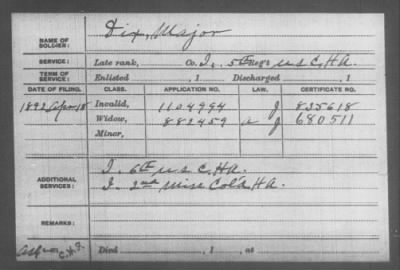 NAME OF SOLDIER: Dix, Major
SERVICE: Late rank, Co. I, 5th Reg't U S C, H A.
TERM OF SERVICE: Enlisted , 1 Discharged , 1
DATE OF FILING. CLASS. APPLICATION NO. LAW. CERTIFICATE NO.
1892 Apr 18 Invalid, 1104994 J 835618
Widow, 882459 a J 680511
Minor,
ADDITIONAL SERVICES: I. 6th U S C, H A.
I. 2nd Miss Col'd H A.
REMARKS:
Died , 1 , at